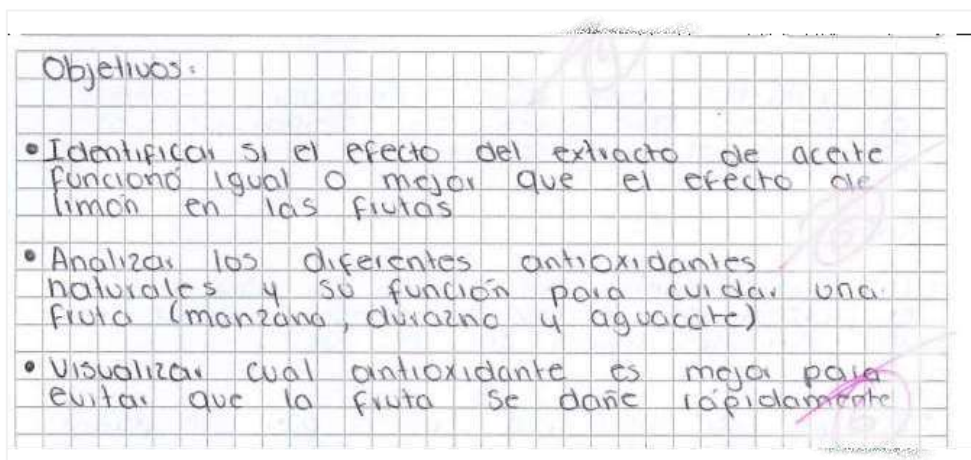 Objetivos:
• Identificar si el efecto del extracto de aceite
funcionó igual o mejor que el efecto de
limón en las frutas
• Analizar los diferentes antioxidantes
naturales y su función para cuidar una
fruta (manzana, durazno y aguacate)
• Visualizar cual antioxidante es mejor para
evitar que la fruta se dañe rápidamente